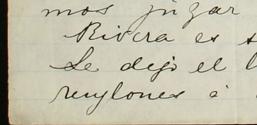 mos jugar
Rivera es s
Le dejo el l
renglones á